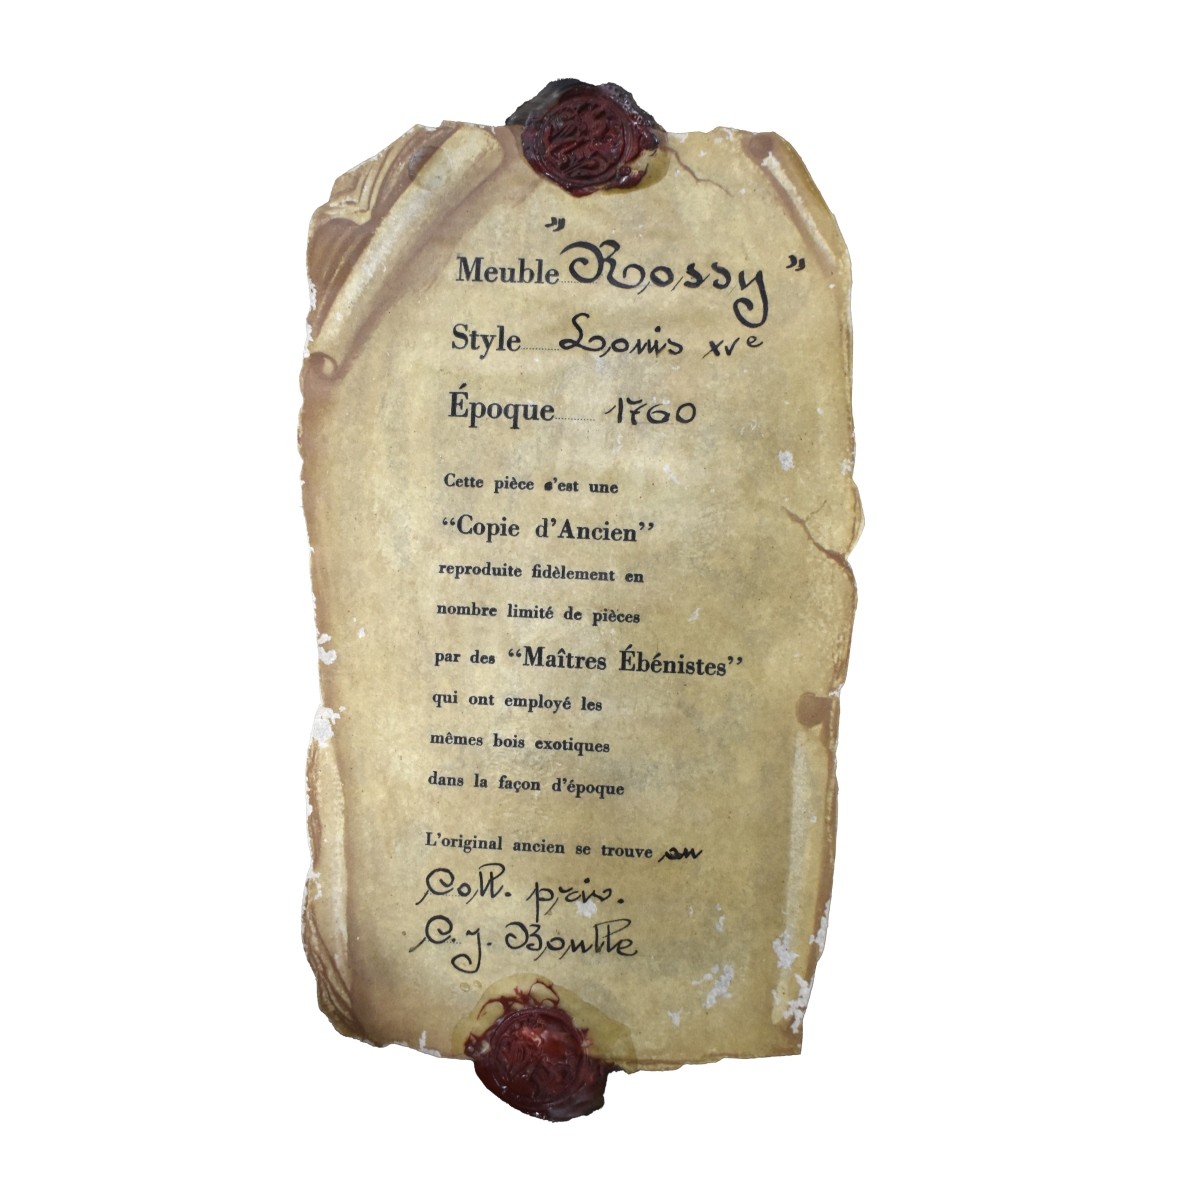 Meuble "Rossy"
Style Louis XVe
Époque 1760
Cette pièce c'est une
“Copie d'Ancien”
reproduite fidèlement en
nombre limité de pièces
par des “Maîtres Ébénistes”
qui ont employé les
mêmes bois exotiques
dans la façon d'époque
L'original ancien se trouve au
Coll. priv.
C. J. Boulle